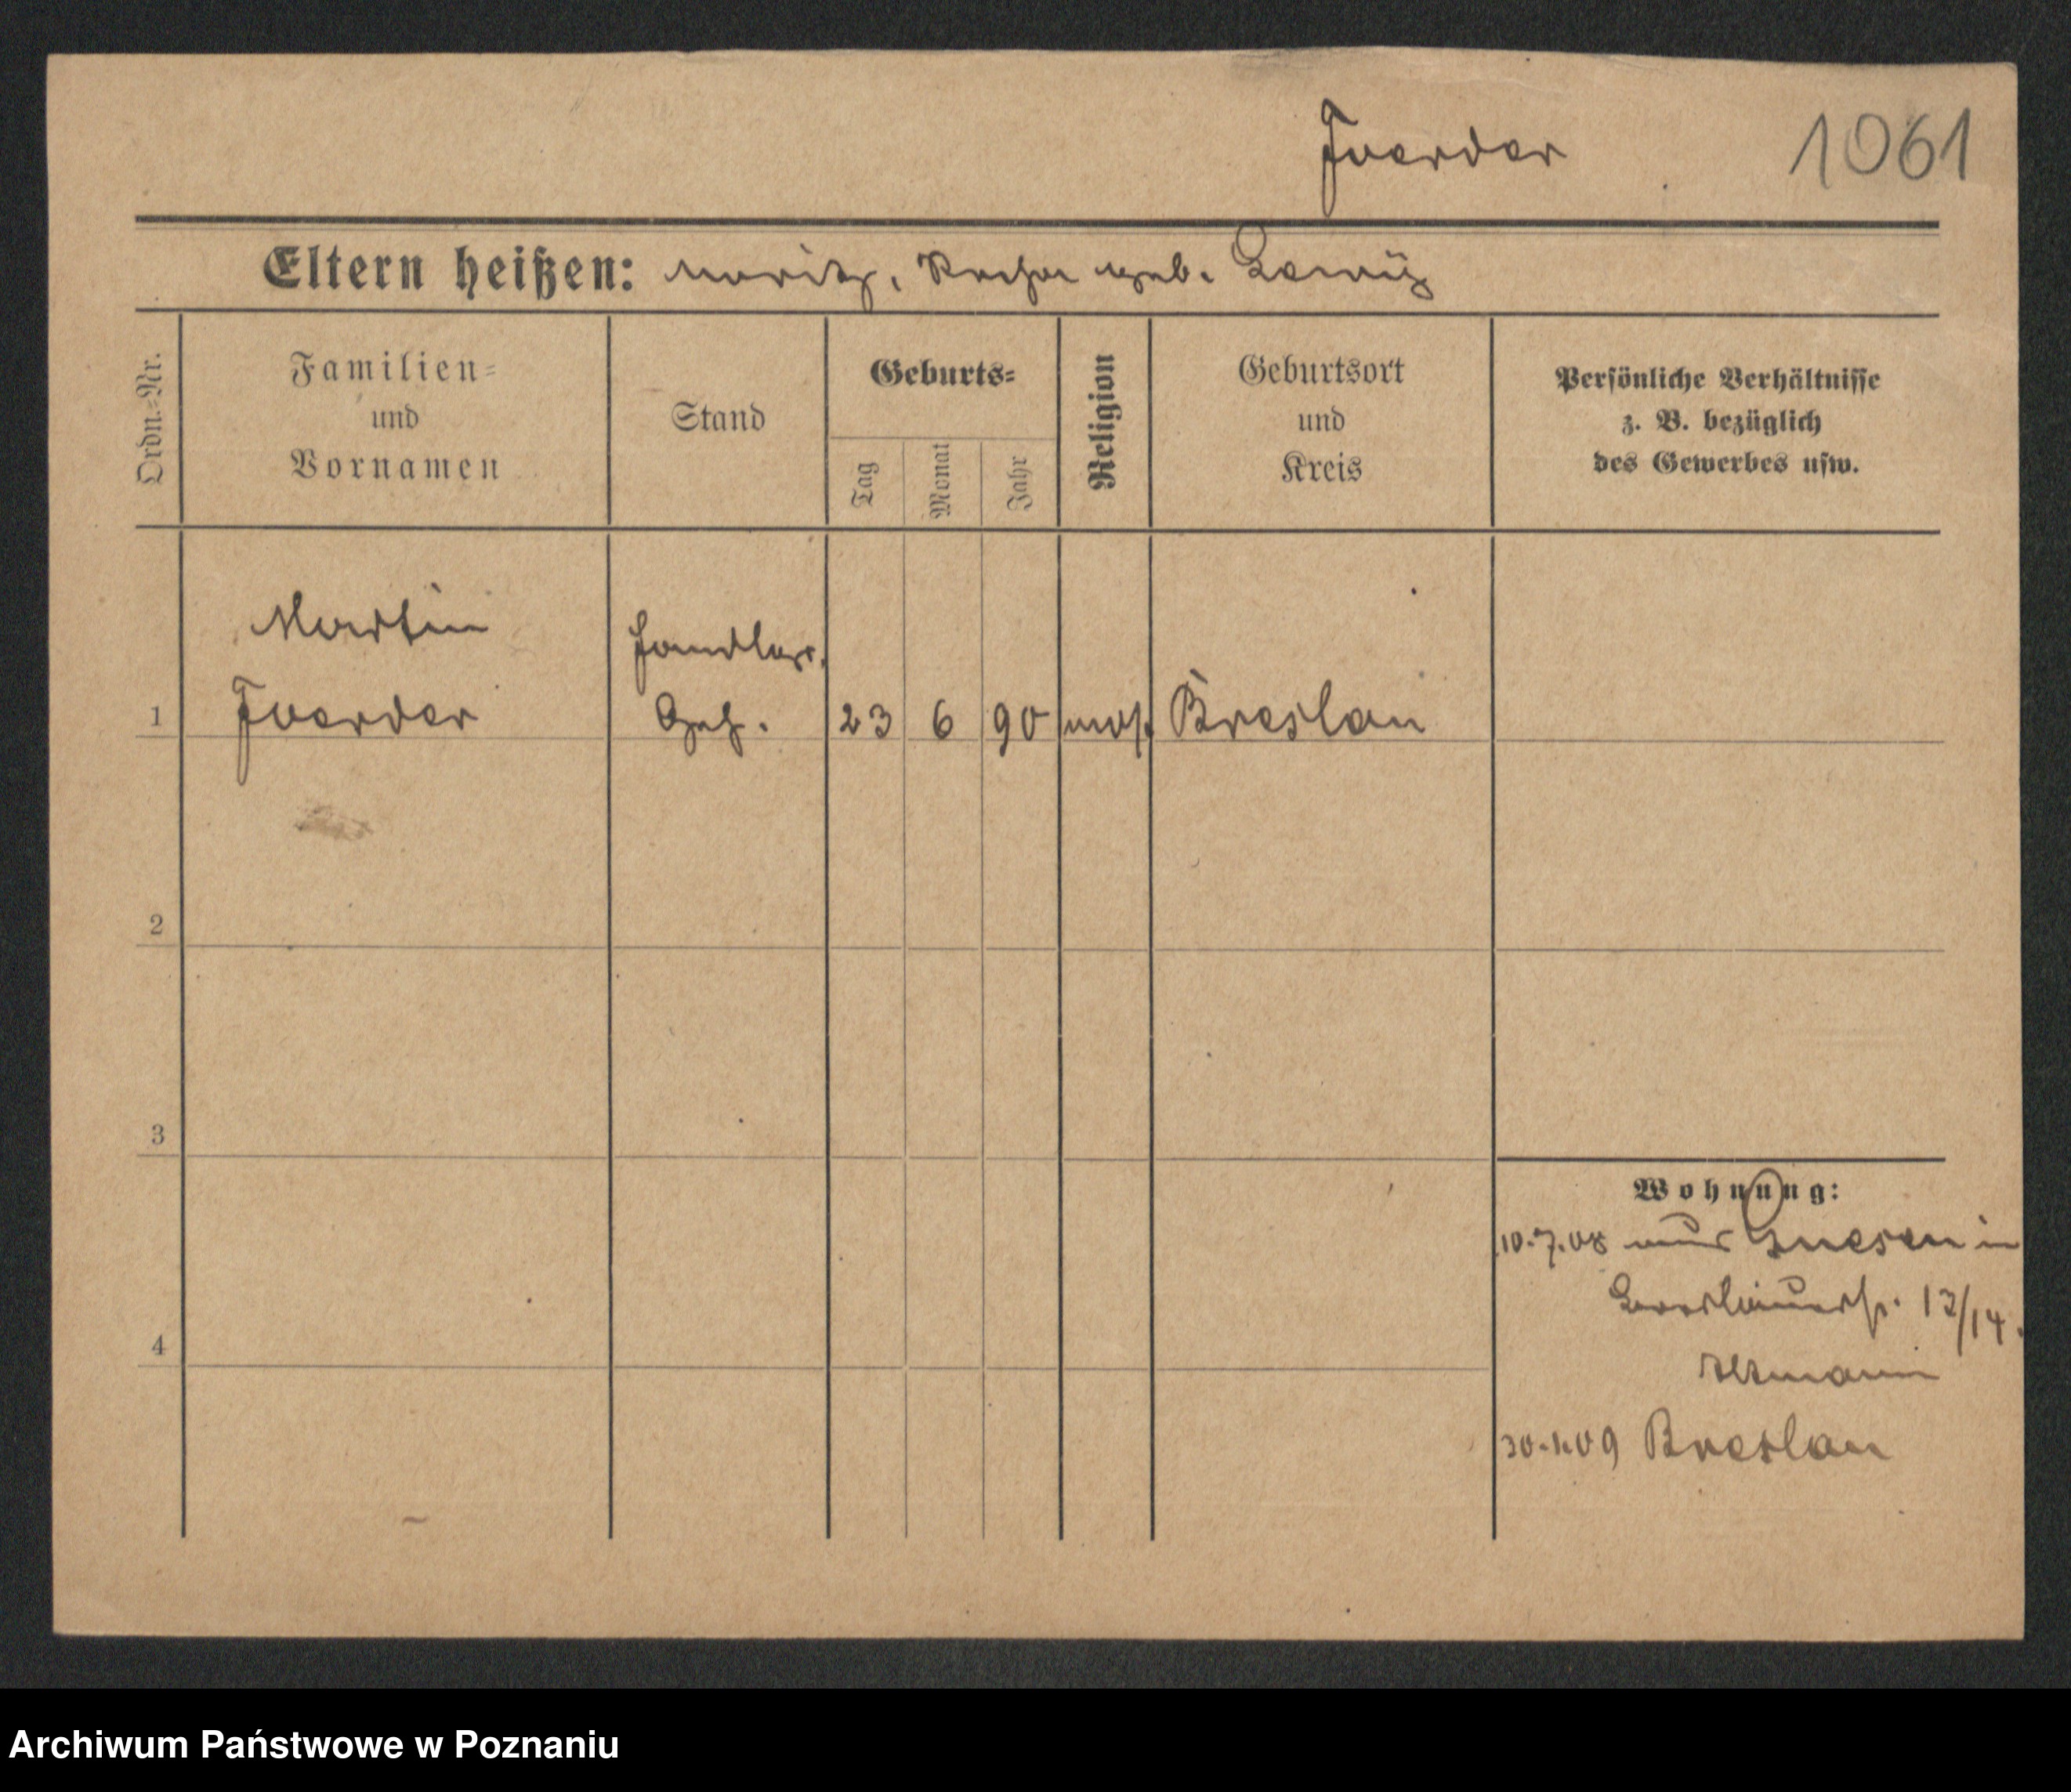 Foerder
1061
Eltern heißen: Moritz, geb.
Ordn.-Nr.
Familien-
und
Vornamen
Stand
Geburts-
Tag
Monat
Jahr
Religion
Geburtsort
und
Kreis
Persönliche Verhältnisse
z. B. bezüglich
des Gewerbes usw.
Martin
Handlgs.
1 Foerder Geh. 23 6 90 mos. Breslau
2
3
4
Wohnung:
10.7.08 aus Gnesen in
13/14.
30.1.09 Breslau
Archiwum Państwowe w Poznaniu